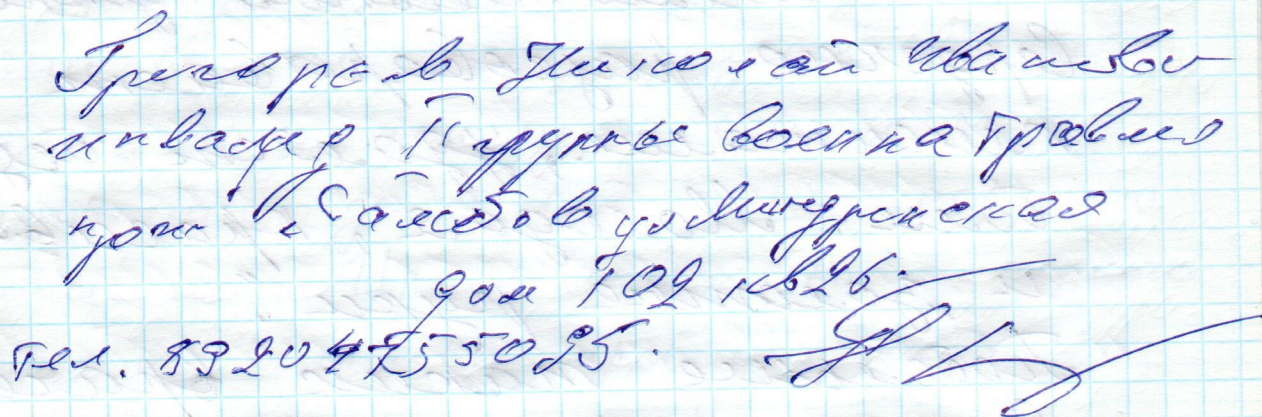 Григорьев Николай Иванович
инвалид II группы военна травма
прож г. Тамбов ул Мичуринская
дом 102 кв 26.
тел. 89204755095.